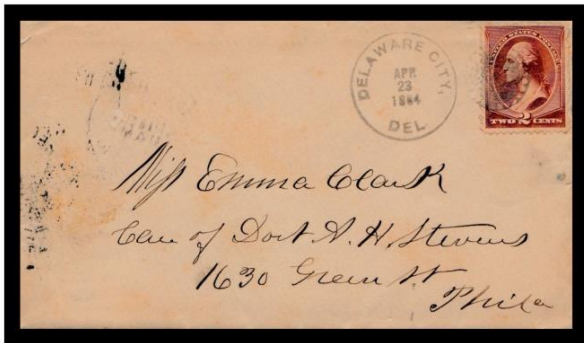 DELAWARE CITY,
APR
23
1884
DEL.
UNITED STATES POSTAGE
TWO 2 CENTS
Miss Emma Clark
Care of Doct A. H. Stevens
1630 Green St
Phila